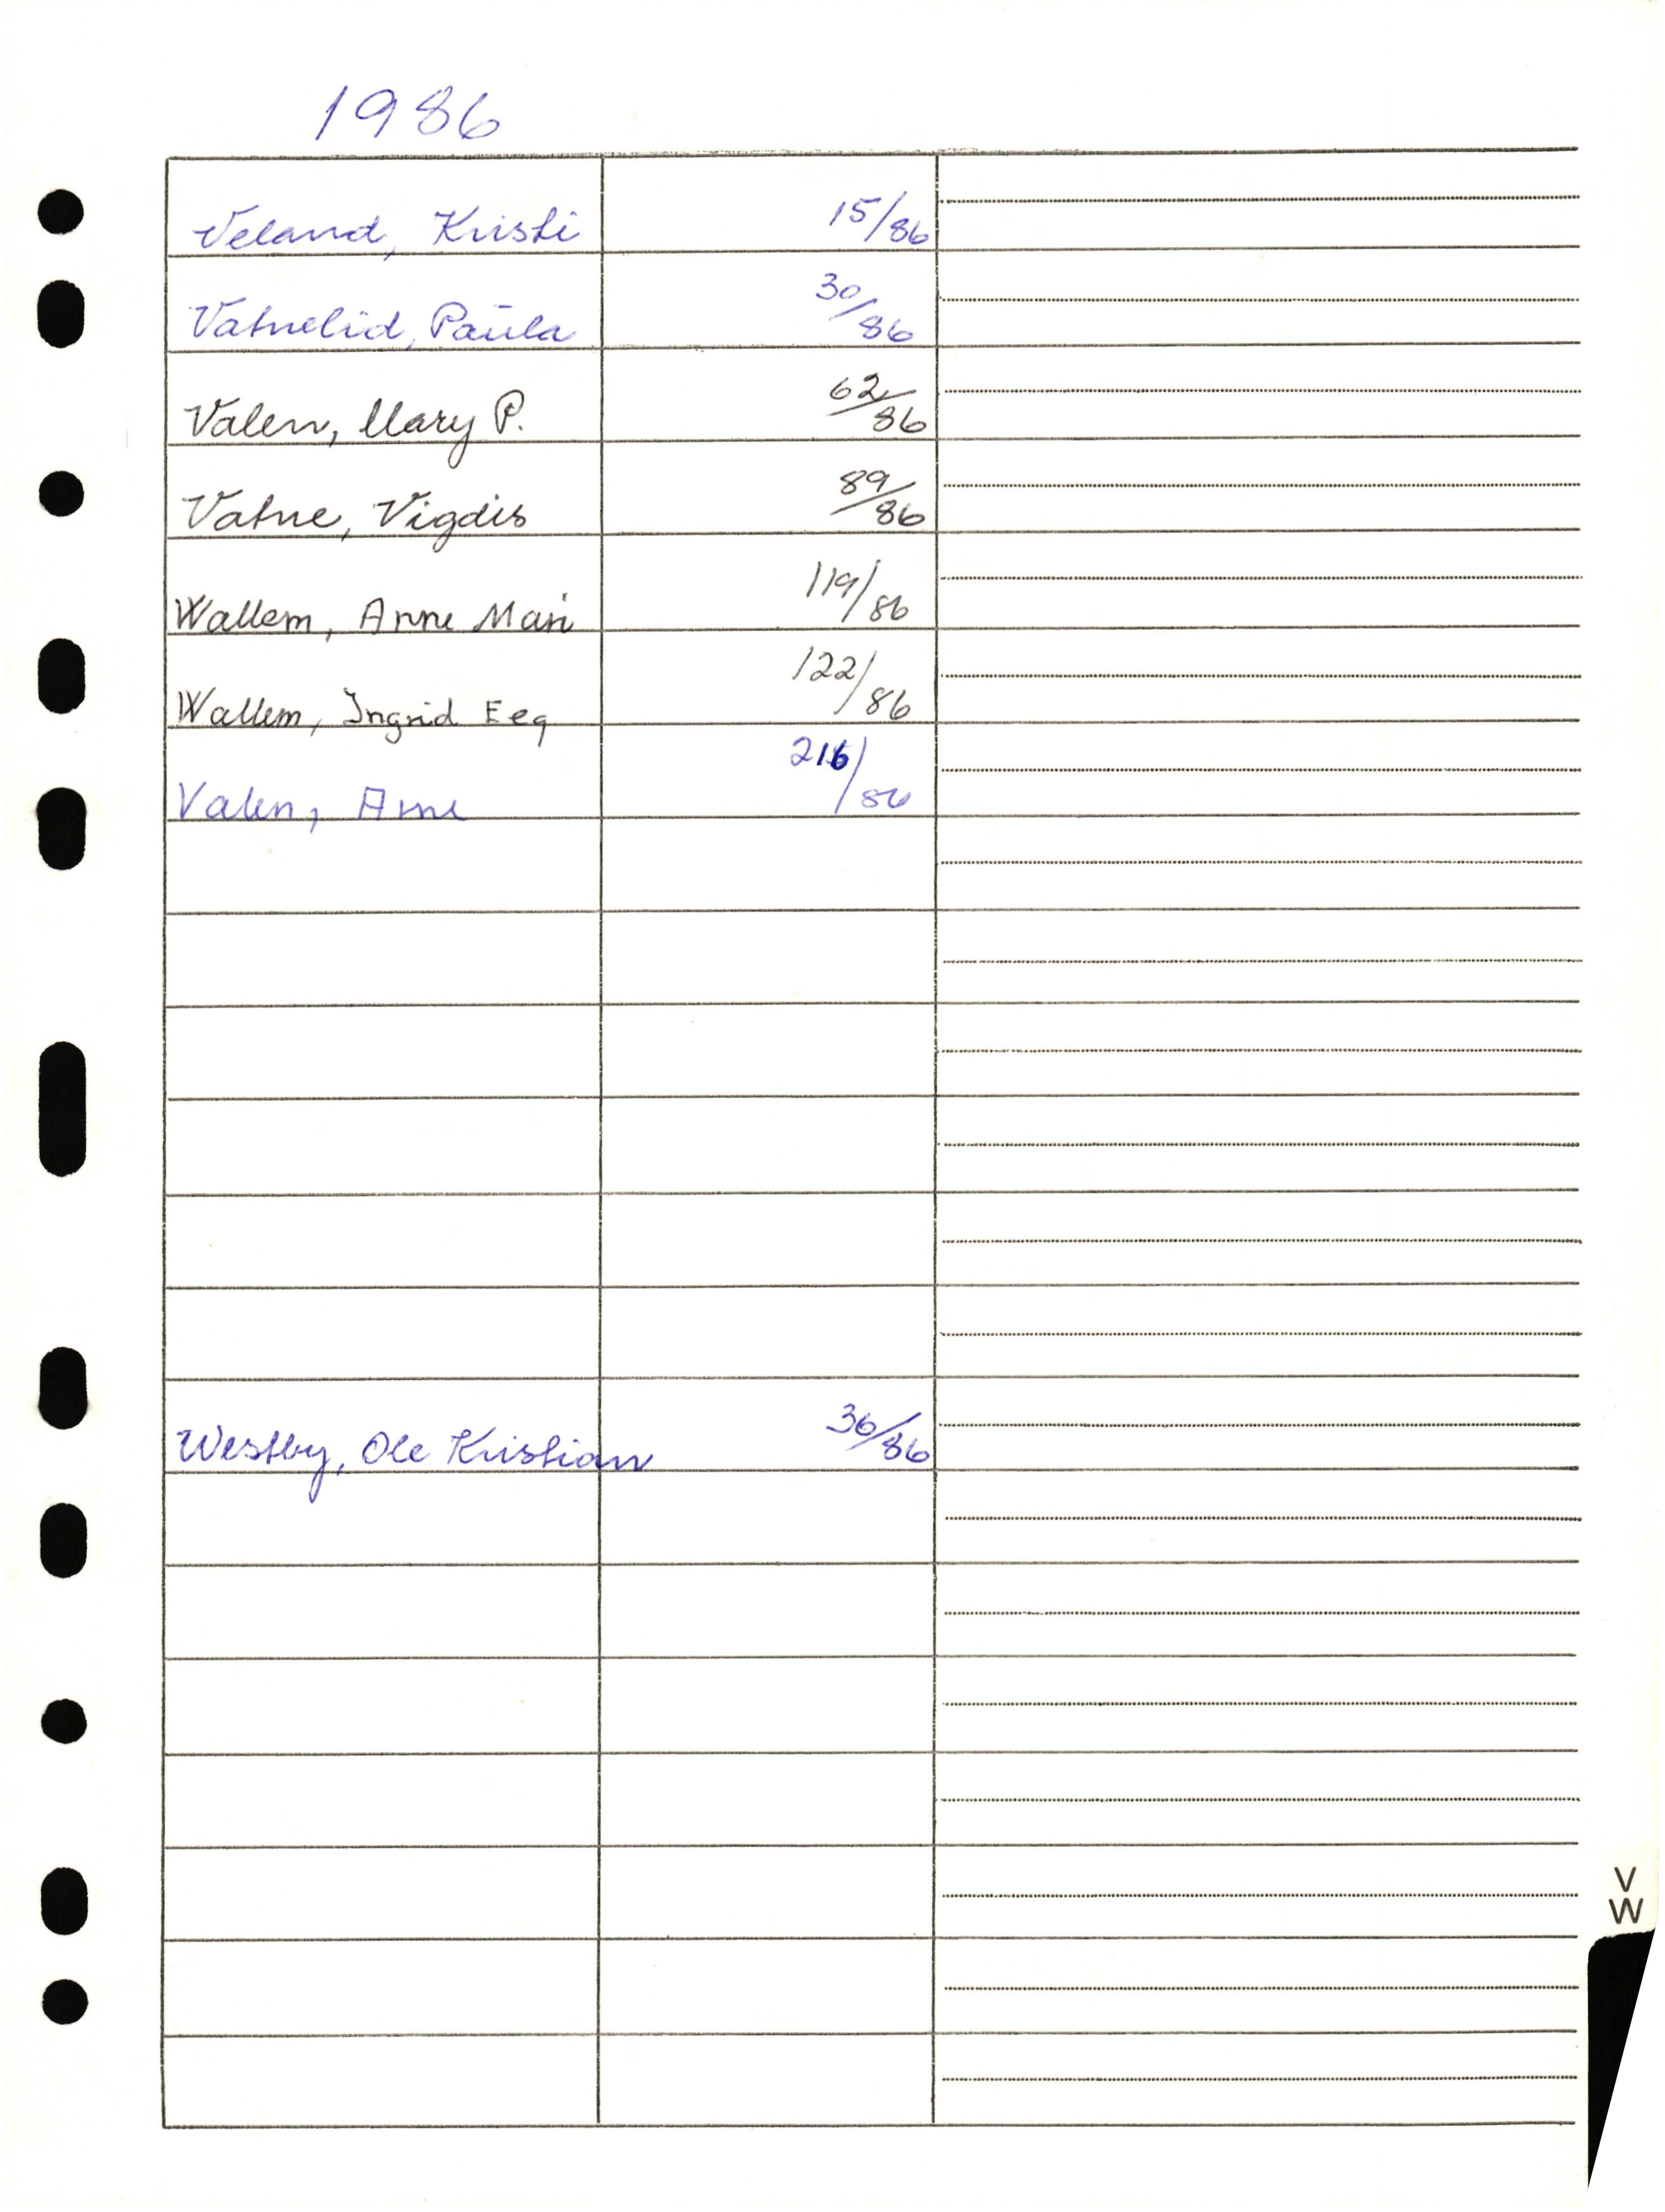 1986
Veland, Kristi 15/86
Vatnelid, Paula 30/86
Valen, Mary P. 62/86
Vatne, Vigdis 89/86
Wallem, Anne Mari 119/86
Wallem, Ingrid Eeg 122/86
Valen, Arne 216/86
Westby, Ole Kristian 36/86
V
W